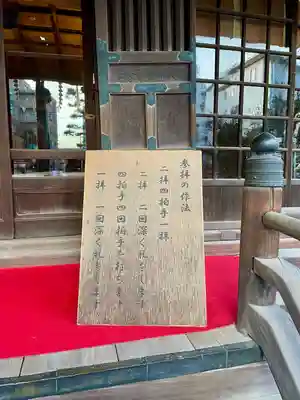 参拝の作法
二拝四拍手一拝
二拝 二回深く礼をします
四拍手 四回拍手を打ちます
一拝 一回深く礼をします